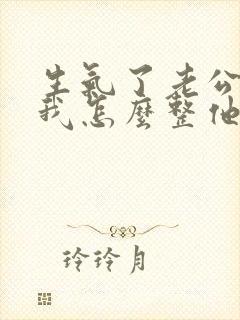 生氣了老公
我怎麼整他
玲玲月